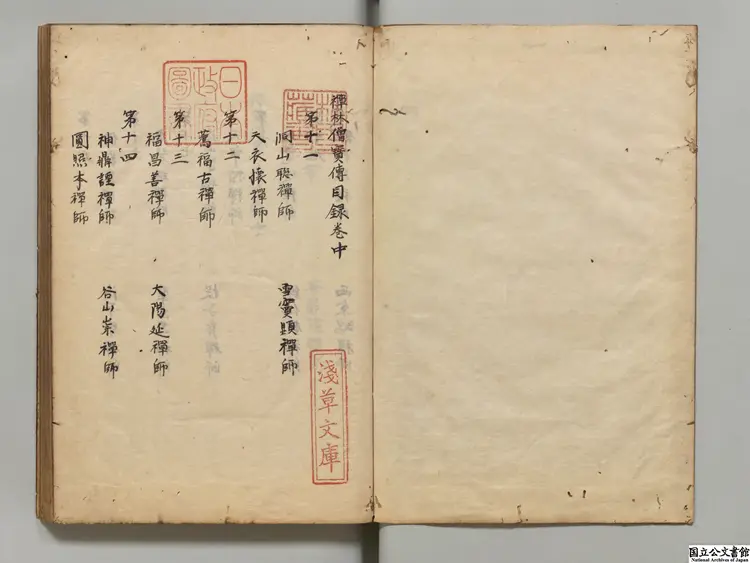 禪林僧寶傳目録卷中
第十一
洞山聡禪師 雪竇顯禪師
天衣懐禪師
第十二
萬福古禪師
第十三
福昌善禪師 大陽延禪師
第十四
神鼎諲禪師 谷山崇禪師
圓照本禪師
日本政府圖書
淺草文庫
国立公文書館
National Archives of Japan